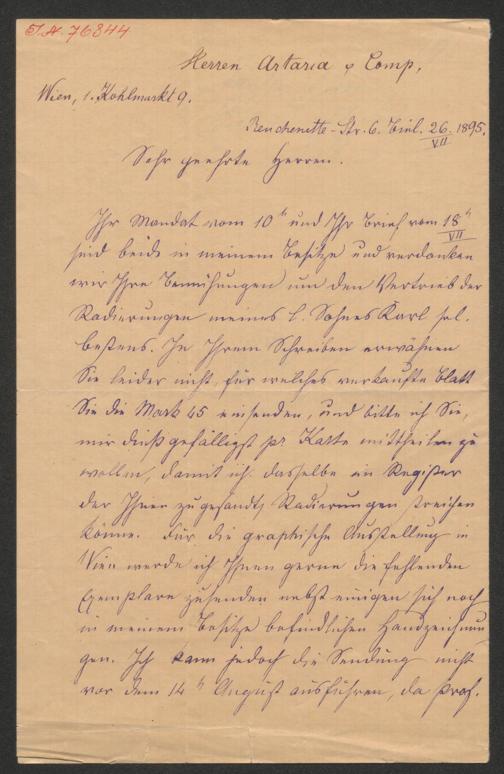 I.N. 76344
Herren Artaria & Comp.
Wien, 1. Kohlmarkt 9.
Reuchenette-Str. 6. Biel. 26. VII 1895.
Sehr geehrte Herren.
Ihr Mandat vom 10ⁿ und Ihr Brief vom 18ⁿ VII
sind beide in meinem Besitze und verdanken
wir Ihre Bemühungen um den Vertrieb der
Radierungen meines l. Sohnes Karl sel.
bestens. In Ihrem Schreiben erwähnen
Sie leider nicht, für welches verkaufte Blatt
Sie die Mark 45 einsenden, und bitte ich Sie,
mir dieß gefälligst pr. Karte mittheilen zu
wollen, damit ich dasselbe im Register
der Ihnen zugesandten Radierungen streichen
könne. Für die graphische Ausstellung in
Wien werde ich Ihnen gerne die fehlenden
Exemplare zusenden nebst einigen sich noch
in meinem Besitze befindlichen Handzeichnun
gen. Ich kann jedoch die Sendung nicht
vor dem 14ⁿ August ausführen, da Prof.